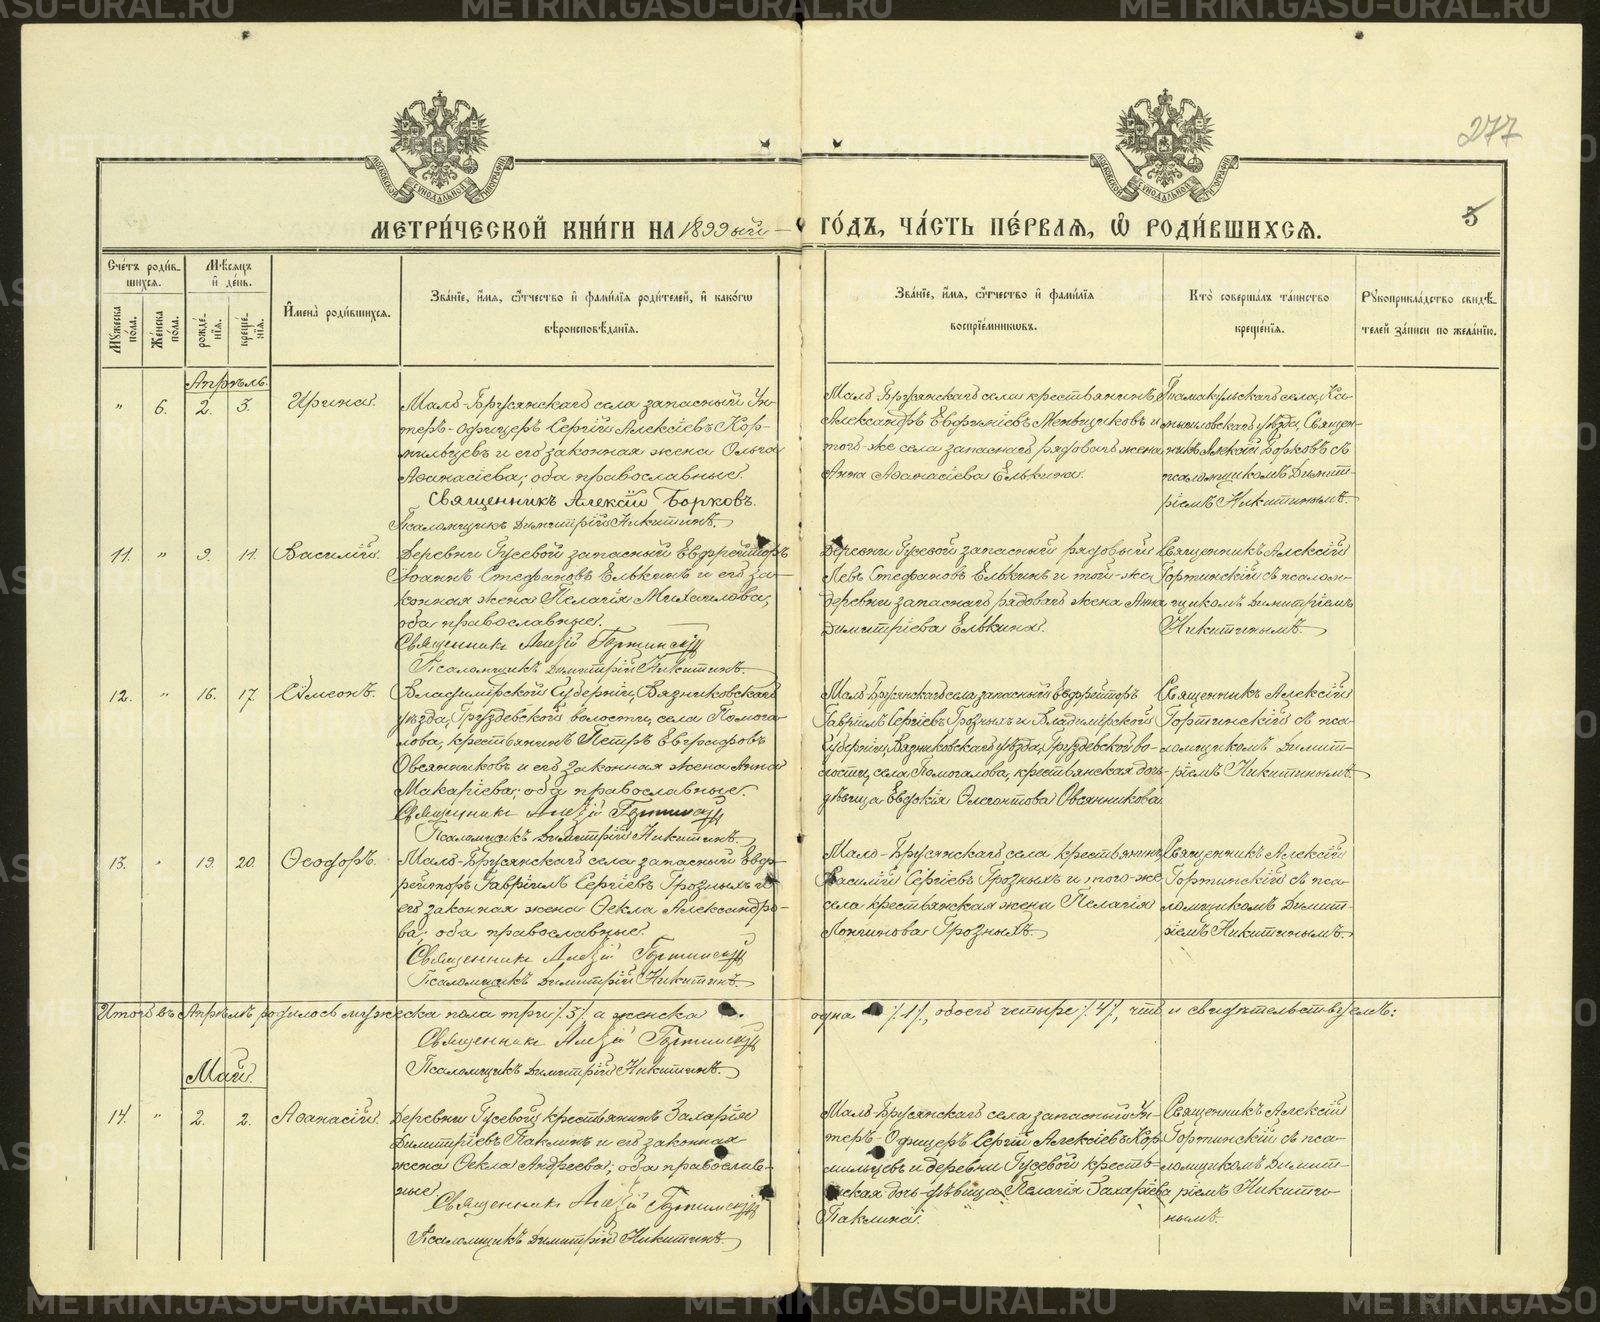 METRIKI.GASO-URAL.RU
277
5
МЕТРИ́ЧЕСКОЙ КНИ́ГИ НА 1899ый ГО́ДЪ, ЧА́СТЬ ПЕ́РВАѦ, Ѽ РОДИ́ВШИХСѦ.
МОСКОВСКОЙ СѴНОДАЛЬНОЙ ТИПОГРАФІИ
МОСКОВСКОЙ СѴНОДАЛЬНОЙ ТИПОГРАФІИ
Сче́тъ роди́в-
шихся.
Мѣсяцъ
и де́нь.
Му́жеска по́ла.
Же́нска по́ла.
рожде́нія.
креще́нія.
Имена̀ роди́вшихся.
Зва́ніе, и́мя, ѻ́тчество и фами́лія роди́телей, и како́гѡ
вѣроисповѣ́данія.
Зва́ніе, и́мя, ѻ́тчество и фами́лія
воспріе́мниковъ.
Кто̀ соверша́лъ та́инство
креще́нія.
Рукоприкла́дство свидѣ́-
телей за́писи по жела́нію.
Апрѣль.
" 6. 2. 3. Ирина.
Мало-Брусянскаго села запасный Ун-
теръ-офицеръ Сергій Алексіевъ Кор-
мильцевъ и его законная жена Ольга
Аѳанасіева; оба православные.
Священникъ Алексій Борковъ.
Псаломщикъ Димитрій Никитинъ.
Мало-Брусянскаго села крестьянинъ
Александръ Евфиміевъ Меньщиковъ и
того-же села запаснаго рядоваго жена
Анна Аѳанасіева Елькина.
Тамакульскаго села, Ка-
мышловскаго уѣзда, Священ-
никъ Алексій Борковъ съ
псаломщикомъ Димит-
ріемъ Никитинымъ.
11. " 9. 11. Василій.
Деревни Гусевой запасный Евфрейторъ
Іоаннъ Стефановъ Елькинъ и его за-
конная жена Пелагія Михаилова;
оба православные.
Священникъ Алексій Гортинскій
Псаломщикъ Димитрій Никитинъ.
Деревни Гусевой запасный рядовый
Левъ Стефановъ Елькинъ и той-же
деревни запаснаго рядоваго жена Анна
Димитріева Елькина.
Священникъ Алексій
Гортинскій съ псалом-
щикомъ Димитріемъ
Никитинымъ.
12. " 16. 17. Сѵмеонъ.
Владимірской Губерніи, Вязниковскаго
уѣзда, Груздевской волости, села Помога-
лова, крестьянинъ Петръ Евграфовъ
Овсянниковъ и его законная жена Анна
Макаріева; оба православные.
Священникъ Алексій Гортинскій
Псаломщикъ Димитрій Никитинъ.
Мало-Брусянскаго села запасный Евфрейторъ
Гавріилъ Сергіевъ Грозныхъ и Владимірской
Губерніи, Вязниковскаго уѣзда, Груздевской во-
лости, села Помогалова, крестьянская дочь-
дѣвица Евдокія Овсянникова.
Священникъ Алексій
Гортинскій съ пса-
ломщикомъ Димит-
ріемъ Никитинымъ.
13. " 19. 20. Ѳеодоръ.
Мало-Брусянскаго села запасный Евф-
рейторъ Гавріилъ Сергіевъ Грозныхъ и
его законная жена Ѳекла Александро-
ва; оба православные.
Священникъ Алексій Гортинскій
Псаломщикъ Димитрій Никитинъ.
Мало-Брусянскаго села крестьянинъ
Василій Сергіевъ Грозныхъ и того-же
села крестьянская жена Пелагія
Лонгинова Грозныхъ.
Священникъ Алексій
Гортинскій съ пса-
ломщикомъ Димит-
ріемъ Никитинымъ.
Итого въ Апрѣлѣ родилось мужеска пола три /3/, а женска одна /1/, обоего четыре /4/, что и свидѣтельствуемъ:
Священникъ Алексій Гортинскій
Псаломщикъ Димитрій Никитинъ.
Май.
14. " 2. 2. Аѳанасій.
Деревни Гусевой крестьянинъ Захарія
Димитріевъ Паклинъ и его законная
жена Ѳекла Андреева; оба православ-
ные.
Священникъ Алексій Гортинскій
Псаломщикъ Димитрій Никитинъ.
Мало-Брусянскаго села запасный Ун-
теръ-Офицеръ Сергій Алексіевъ Кор-
мильцевъ и деревни Гусевой кресть-
янская дочь-дѣвица Пелагія Захаріева
Паклина.
Священникъ Алексій
Гортинскій съ пса-
ломщикомъ Димит-
ріемъ Никити-
нымъ.